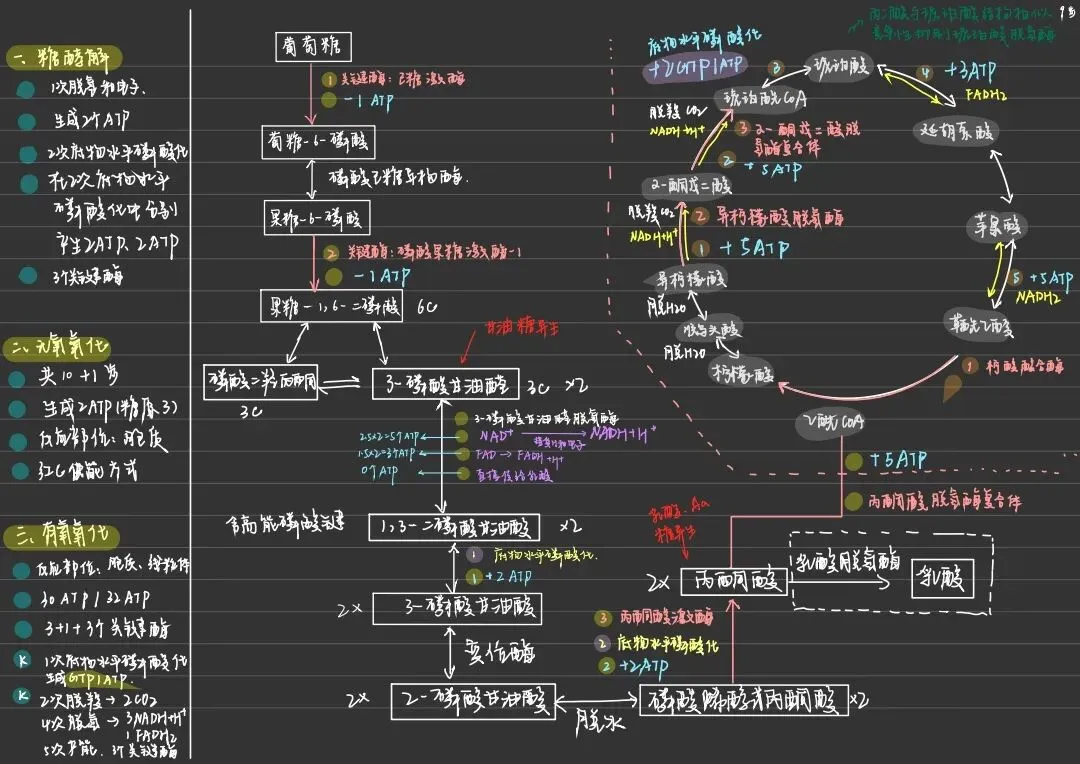 一. 糖酵解
1次脱氢和电子.
生成2个ATP
2次底物水平磷酸化
在2次底物水平
磷酸化时分别
产生2ATP、2ATP
3个关键酶
二. 无氧氧化
共10+1步
生成2ATP(糖原3)
反应部位:胞质
红C供能方式
三. 有氧氧化
反应部位:胞质、线粒体
30ATP/32ATP
3+1+3个关键酶
K 1次底物水平磷酸化
生成GTP/ATP.
K 2次脱羧→2CO2
4次脱氢→3NADH+H⁺
1FADH2
5次产能.3个关键酶
葡萄糖
1 关键酶:己糖激酶
-1 ATP
葡糖-6-磷酸
磷酸己糖异构酶.
果糖-6-磷酸
2 关键酶:磷酸果糖激酶-1
-1 ATP
果糖-1,6-二磷酸 6C
甘油糖异生
磷酸二羟丙酮
3C
3-磷酸甘油醛 3C ×2
3-磷酸甘油醛脱氢酶
2.5×2=5个ATP
NAD⁺ → NADH+H⁺
接受H和电子
1.5×2=3个ATP
FAD → FADH+H⁺
0个ATP
直接传给乳酸
含高能磷酸键
1,3-二磷酸甘油酸 ×2
1 底物水平磷酸化.
1 +2ATP
2× 3-磷酸甘油酸
变位酶
2× 2-磷酸甘油酸
脱水
磷酸烯醇式丙酮酸 ×2
3 丙酮酸激酶
2 底物水平磷酸化
2 +2ATP
乳酸、Aa
糖异生
2× 丙酮酸
乳酸脱氢酶
乳酸
丙酮酸脱氢酶复合体
+5ATP
乙酰CoA
1 柠檬酸合酶
草酰乙酸
柠檬酸
脱H2O
顺乌头酸
脱H2O
异柠檬酸
2 异柠檬酸脱氢酶
1 +5ATP
脱羧CO2
NADH+H⁺
2-酮戊二酸
3 2-酮戊二酸脱
氢酶复合体
2 +5ATP
脱羧CO2
NADH+H⁺
琥珀酰CoA
底物水平磷酸化
+2GTP/ATP
3
琥珀酸
丙二酸与琥珀酸结构相似
竞争性抑制琥珀酸脱氢酶
4 +3ATP
FADH2
延胡索酸
苹果酸
5 +5ATP
NADH2